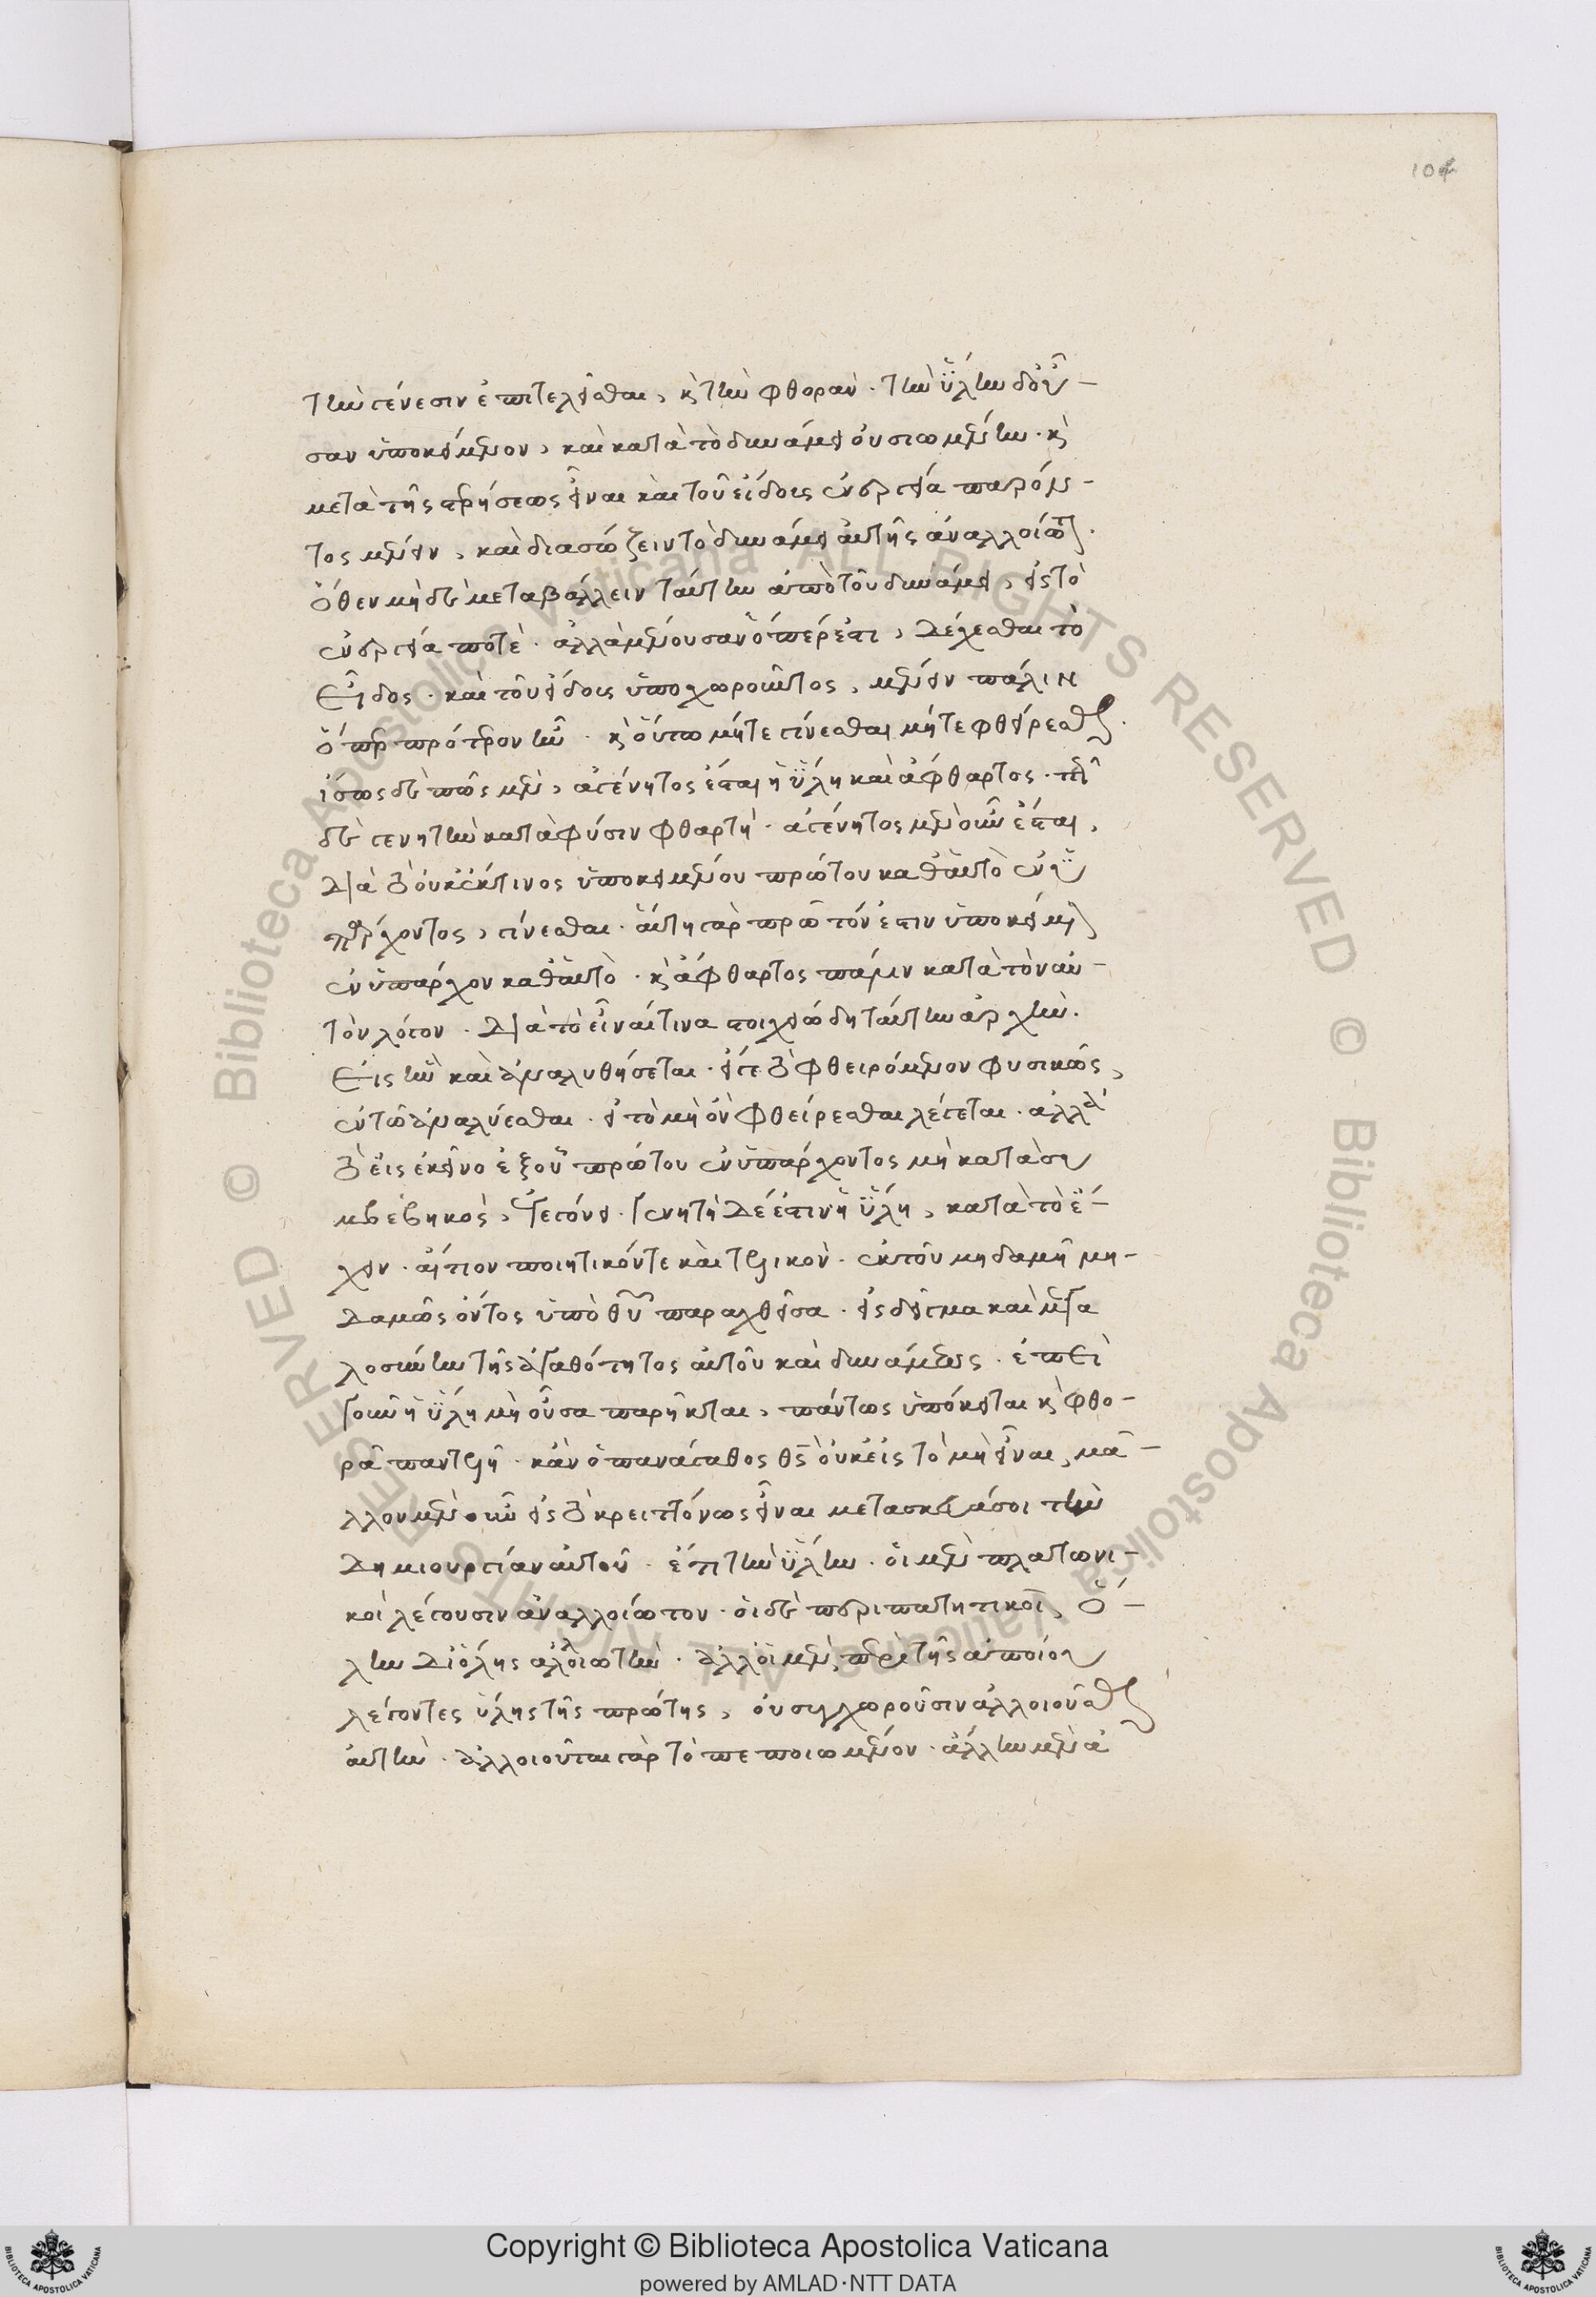 104
τὴν γένεσιν ἐπιτελεῖσθαι, καὶ τὴν φθοράν. τὴν ὕλην δὲ οὖ-
σαν ὑποκείμενον, καὶ κατὰ τὸ δυνάμει οὐσιωμένην. καὶ
μετὰ τῆς στερήσεως εἶναι καὶ τοῦ εἴδους ἐνεργείᾳ παρόν-
τος μένειν, καὶ διασώζειν τὸ δυνάμει αὐτῆς ἀναλλοίωτον.
ὅθεν μηδὲ μεταβάλλειν ταύτην ἀπὸ τοῦ δυνάμει, εἰς τὸ
ἐνεργείᾳ ποτέ. ἀλλὰ μένουσαν ὅπερ ἐστι, δέχεσθαι τὸ
εἶδος. καὶ τοῦ εἴδους ὑποχωροῦντος, μένειν πάλιν
ὅπερ πρότερον ἦν. καὶ οὕτω μήτε γίνεσθαι μήτε φθείρεσθαι.
ἴσως δὲ πῶς μὲν, ἀγένητος ἔσται ἡ ὕλη καὶ ἄφθαρτος. πῆ
δὲ γενητὴ κατὰ φύσιν φθαρτή. ἀγένητος μὲν οὖν ἔσται,
διὰ τὸ οὐκ ἐκ τινος ὑποκειμένου πρώτου καθ' αὑτὸ ἐνυ
πάρχοντος, γίνεσθαι. αὕτη γὰρ πρῶτόν ἐστιν ὑποκείμενον
ἐνυπάρχον καθ' αὑτὸ. καὶ ἄφθαρτος πάλιν κατὰ τὸν αὐ-
τὸν λόγον. διὰ τὸ εἶναί τινα στοιχειώδη ταύτην ἀρχὴν.
εἰς ἣν καὶ ἀναλυθήσεται. εἴγε τὸ φθειρόμενον φυσικῶς,
ἐν τῷ ἀναλύεσθαι. εἰς τὸ μὴ ὂν φθείρεσθαι λέγεται. ἀλλὰ
τὸ εἰς ἐκεῖνο ἐξ οὗ πρώτου ἐνυπάρχοντος μὴ κατὰ συ
μβεβηκὸς, ἐγεγόνει. γενητὴ δέ ἐστιν ἡ ὕλη, κατὰ τὸ ἔ-
χειν. αἴτιον ποιητικόν τε καὶ τελικὸν. ἐκ τοῦ μηδαμῆ μη-
δαμῶς ὄντος ὑπὸ θυ παραχθεῖσα. εἰς δεῖγμα καὶ μεγα
λοσύνην τῆς ἀγαθότητος αὐτοῦ καὶ δυνάμεως. ἐπεὶ
γοῦν ἡ ὕλη μὴ οὖσα παρῆκται, πάντως ὑπόκειται καὶ φθο-
ρᾶ παντελῆ. κἂν ὁ πανάγαθος θς οὐκ εἰς τὸ μὴ εἶναι, μᾶ-
λλον μὲν οὖν εἰς τὸ κρειττόνως εἶναι μετασκευάσοι τὴν
δημιουργίαν αὐτοῦ. ἔτι τὴν ὕλην. οἱ μὲν πλατωνι-
κοὶ λέγουσιν ἀναλλοίωτον. οἱ δὲ περιπατητικοὶ, ὅ-
λην δι' ὅλης ἀλλοιωτὴν. ἀλλ' οἱ μὲν, περὶ τῆς ἀποίου
λέγοντες ὕλης τῆς πρώτης, οὐ συγχωροῦσιν ἀλλοιοῦσθαι
αὐτὴν. ἀλλοιοῦται γὰρ τὸ πεποιωμένον. ἄλλην μὲν ἀ
Copyright © Biblioteca Apostolica Vaticana
powered by AMLAD·NTT DATA